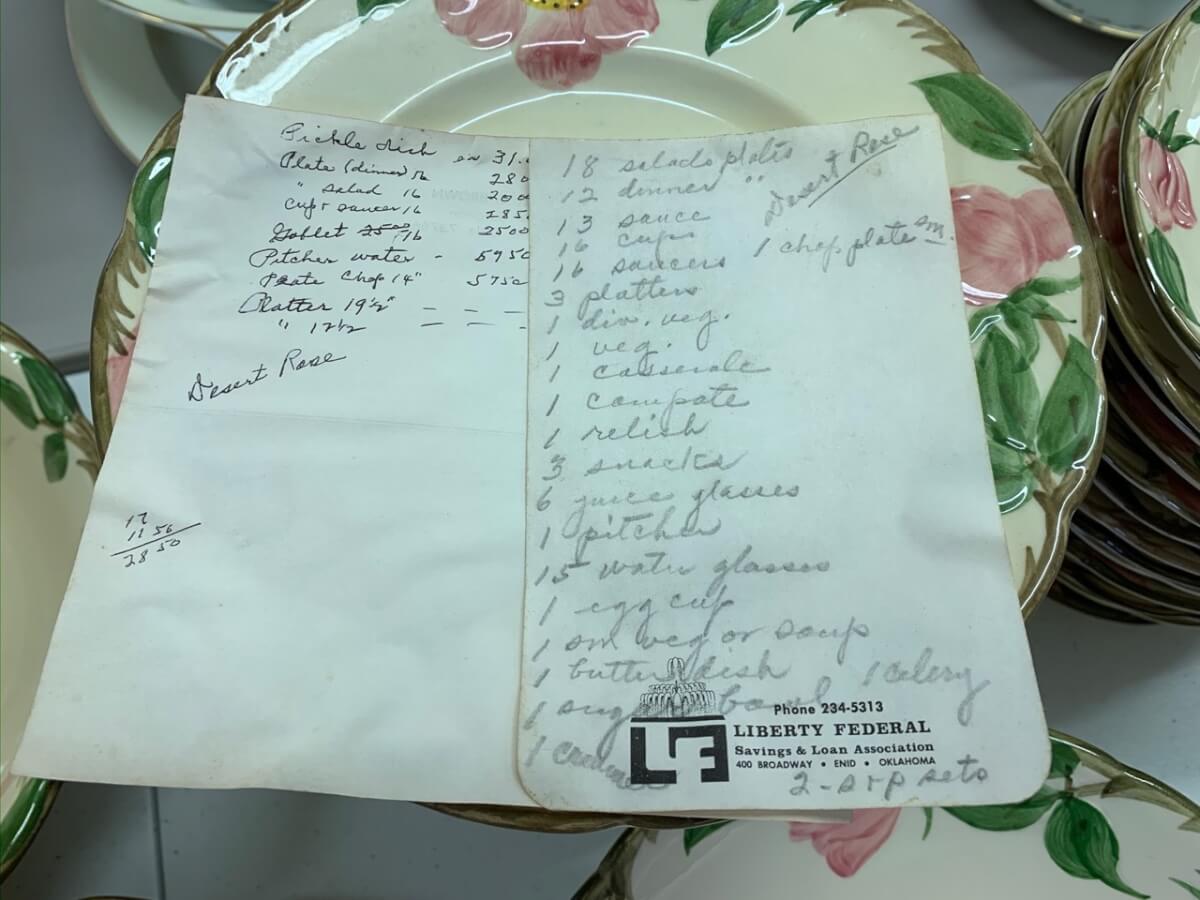 Pickle dish 31.
Plate (dinner) 280
" salad 16 200
Cup & saucer 16 285
Goblet 2500 16 2500
Pitcher water - 5950
Plate Chop 14" 5750
Platter 19½" - - -
" 12½ - - -
Desert Rose
17
11 50
28 50
18 salads plates
12 dinner "
Desert Rose
13 sauce
16 cups
1 chop plate sm.
16 saucers
3 platters
1 div. veg.
1 veg.
1 casserole
1 compote
1 relish
3 snacks
6 juice glasses
1 pitcher
15 water glasses
1 egg cup
1 sm veg or soup
1 butter dish 1 celery
1 sugar bowl
1 creamer
2 - s & p sets
Phone 234-5313
LF
LIBERTY FEDERAL
Savings & Loan Association
400 BROADWAY • ENID • OKLAHOMA